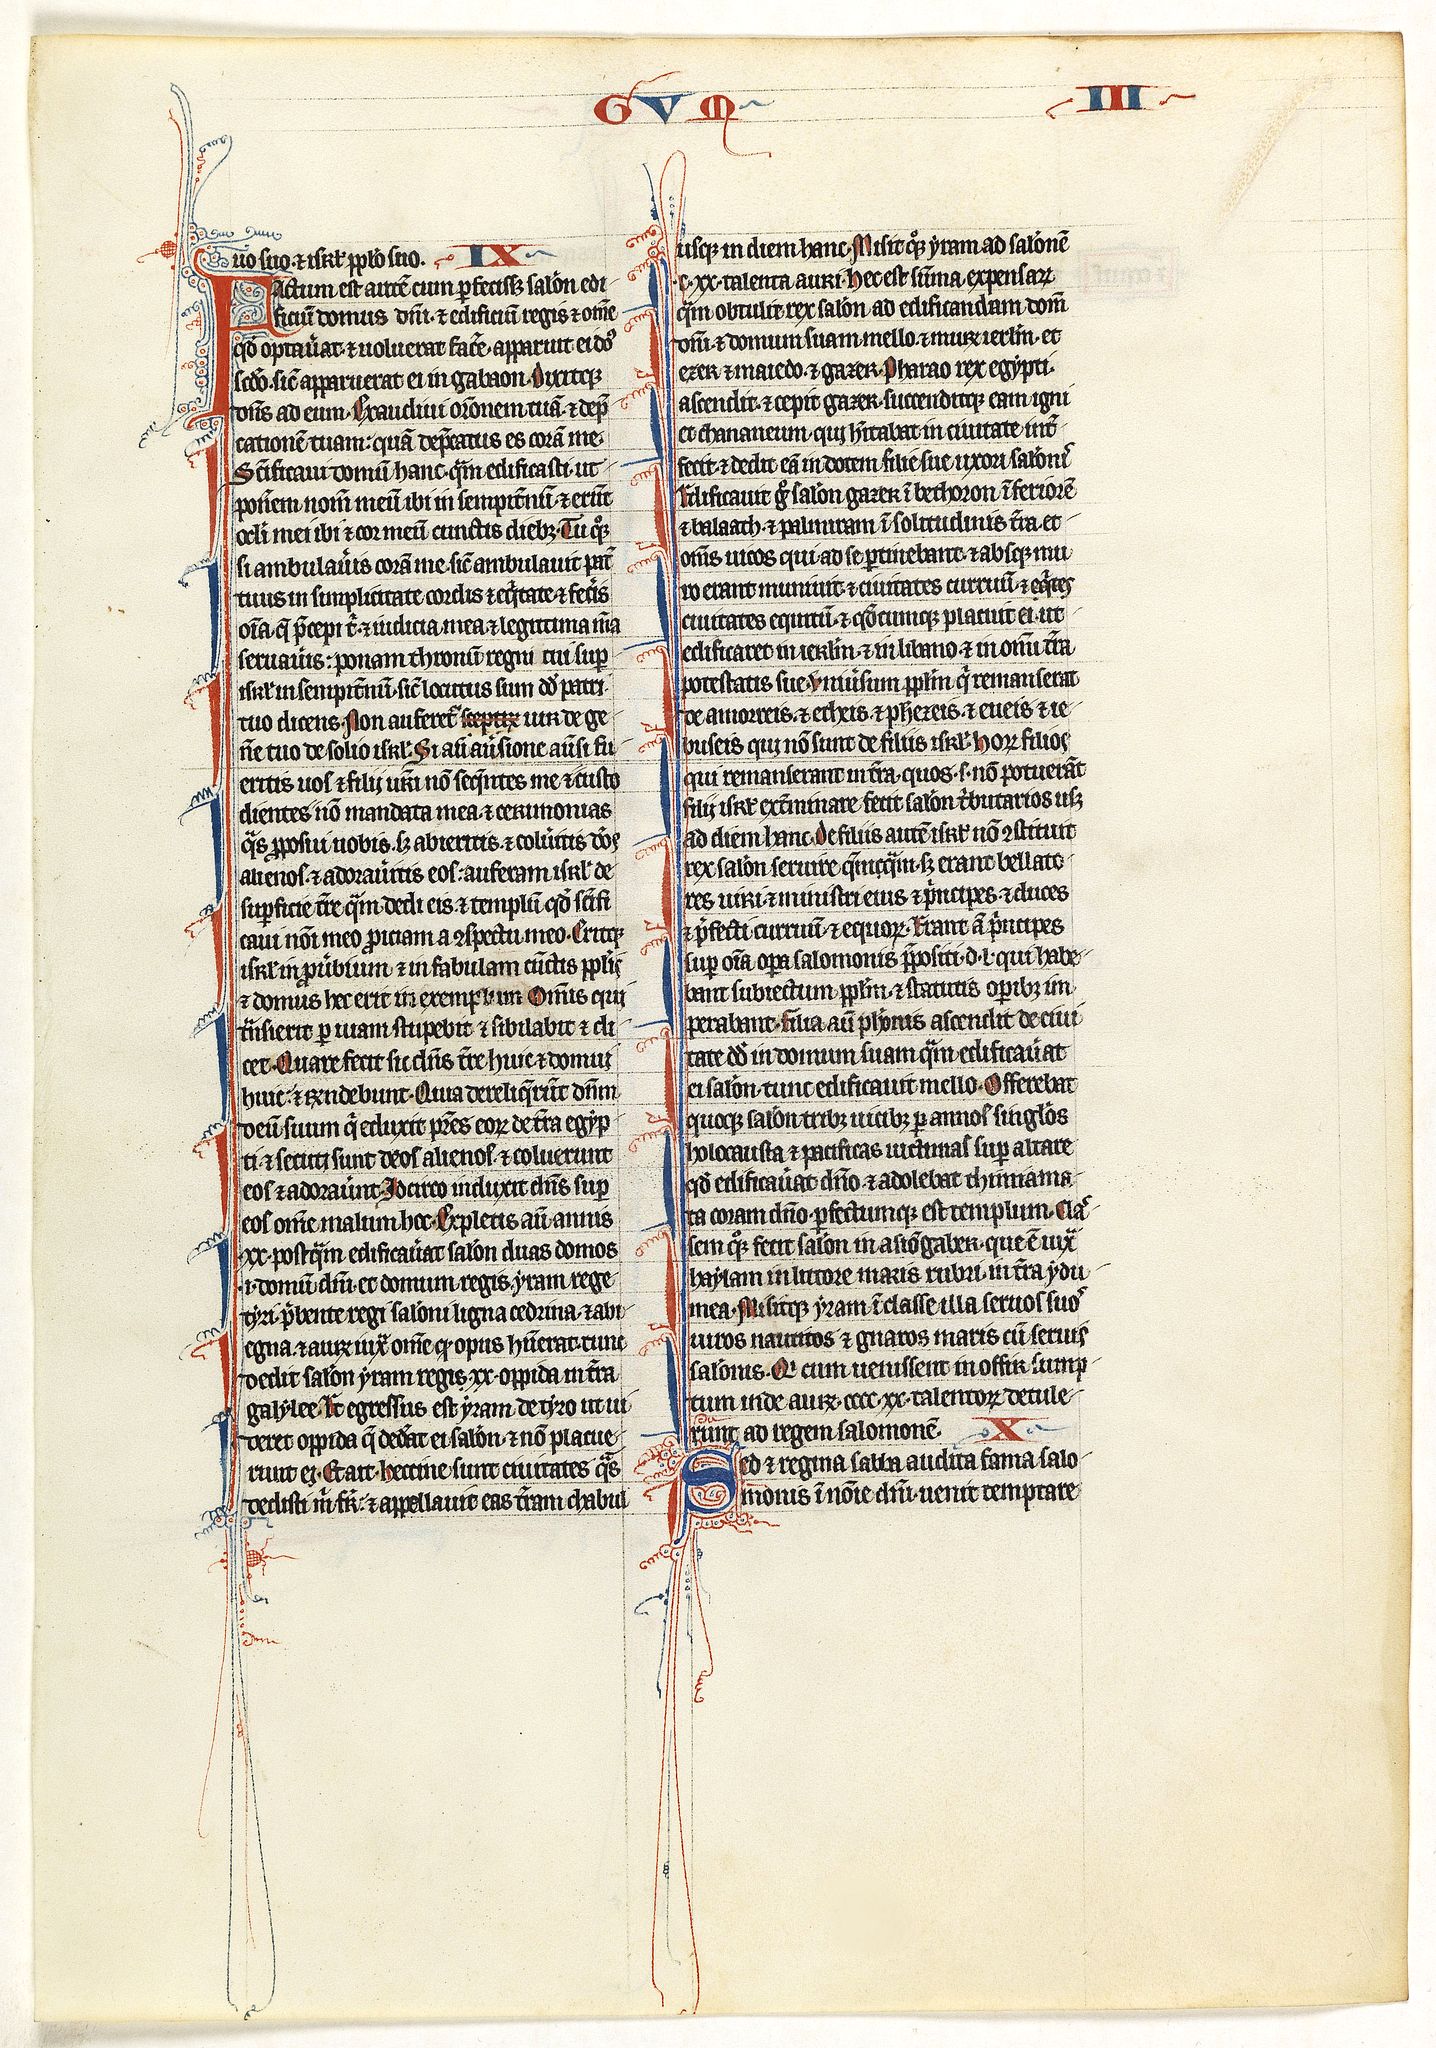 GVM III
uo suo ⁊ isrl' pplo suo. IX
Factum est autē cum ꝑfecissꝫ salon̄ edi
ficiū domus dn̄i ⁊ edificiū regis ⁊ om̄e
qd̄ optau̾at ⁊ uoluerat fac̄e apparuit ei dn̄s
scd̄o sic̄ apparuerat ei in gabaon. Dixitqꝫ
dn̄s ad eum. Exaudiui or̄onem tuā ⁊ dep̄
cationē tuam: quā dep̄catus es corā me.
Sc̄ificaui domū hanc quā edificasti ut
ponēem nom̄ meū ibi in sempit̄nū ⁊ erūt
ocl̄i mei ibi ⁊ cor meū cunctis diebꝫ. Tu qꝫ
si ambulau̾is corā me sic̄ ambulauit pat̄
tuus in simplicitate cordis ⁊ eq̄tate ⁊ fec̾is
oīa q̄ p̄cepi t ⁊ iudicia mea ⁊ legittima m̄a
seruau̾is: ponam thronū regni tui suꝑ
isrl' in sempit̄nū sic̄ locutus sum dd̄ patri
tuo dicens. Non auferet̄ uir de ge
ne tuo de solio isrl'. Si aū au̾sione au̾si fu
eritis uos ⁊ filij ur̄i nō seq̄ntes me ⁊ custo
dientes nō mandata mea ⁊ cerimonias
q̄s ꝓposui uobis. sꝫ abieritis ⁊ colu̾itis d̄os
alienos ⁊ adorau̾itis eos: auferam isrl' de
suꝑficie tr̄e quā dedi eis ⁊ templū qd̄ sc̄ifi
caui noī meo ꝓiciam a ꝯspectu meo. Eritqꝫ
isrl' in ꝓu̾bium ⁊ in fabulam cūctis pplis
⁊ domus hec erit in exemplum. Omīs qui
trāsierit ꝑ uiam stupebit ⁊ sibilabit ⁊ di
cet. Quare fecit sic dn̄s tr̄e huic ⁊ domui
huic: ⁊ rn̄debunt. Quia dereliq̄rūt dn̄m
deū suum q̄ eduxit pr̄es eoꝝ de tr̄a egyp
ti ⁊ secuti sunt deos alienos ⁊ coluerunt
eos ⁊ adorau̾unt. Idcirco induxit dn̄s suꝑ
eos om̄e malum hoc. Expletis aū annis
.xx. postquā edificau̾at salon̄ duas domos
.i. domū dn̄i et domum regis yram rege
tyri p̄bente regi saloni ligna cedrina ⁊ abi
egna ⁊ auꝝ iux̄ om̄e qd̄ opus hūerat tunc
dedit salon̄ yram regis .xx. oppida in tr̄a
galylee. Et egressus est yram de tyro ut ui
deret oppida q̄ ded̾at ei salon̄ ⁊ nō placue
runt ei. Et ait. Heccine sunt ciuitates q̄s
dedisti m̄ fr̄: ⁊ appellauit eas tr̄am chabul
usqꝫ in diem hanc. Misit qꝫ yram ad salonē
.c.xx. talenta auri. Hec est sūma expensaꝝ
quā obtulit rex salon̄ ad edificandam dom̄
dn̄i ⁊ domum suam mello ⁊ muꝝ ierl'm et
ezer ⁊ maiedo ⁊ gazer. Pharao rex egypti
ascendit ⁊ cepit gazer succenditqꝫ eam igni
et chananeum qui h̄itabat in ciuitate int̄
fecit ⁊ dedit eā in dotem filie sue uxori saloni̾
Edificauit g̊ salon̄ gazer ⁊ bethoron īferiorē
⁊ balaath ⁊ palmiram ī solitudinis tr̄a et
om̄s uicos qui ad se ꝑtinebant ⁊ absqꝫ mu
ro erant muniuit ⁊ ciuitates curruū ⁊ eq̄tes
ciuitates equitū ⁊ qd̄cumqꝫ placuit ei ut
edificaret in ierl'm ⁊ in libano ⁊ in omī tr̄a
potestatis sue. Vniu̾sum ppl'm q̄ remanserat
de amorreis ⁊ etheis ⁊ pherezeis ⁊ eueis ⁊ ie
buseis qui nō sunt de filiis isrl'. Hoꝝ filios
qui remanserant in tr̄a quos .s. nō potuerāt
filij isrl' ext̄minare fecit salon̄ t̾butarios usqꝫ
ad diem hanc. De filiis autē isrl' nō ꝯstituit
rex salon̄ seruire quēqquā. sꝫ erant bellato
res uiri ⁊ ministri eius ⁊ p̾ncipes ⁊ duces
⁊ p̄fecti curruū ⁊ equoꝝ. Erant ā p̾ncipes
suꝑ oīa oꝑa salomonis p̄positi .d.l. qui habe
bant subiectum ppl'm ⁊ statutis oꝑibꝫ im
perabant. Filia aū ph̾onis ascendit de ciui
tate dd̄ in domum suam quā edificau̾at
ei salon̄ tunc edificauit mello. Offerebat
quoqꝫ salon̄ tribꝫ uicibꝫ ꝑ annos singl'os
holocausta ⁊ pacificas uictimas suꝑ altare
qd̄ edificau̾at dn̄o ⁊ adolebat thimiama
ta coram dn̄o ꝑfectumqꝫ est templum. Clas
sem qꝫ fecit salon̄ in asiōgaber que ē iux̄
haylam in littore maris rubri in tr̄a ydu
mea. Misitqꝫ yram ī classe illa seruos suos
uiros nauticos ⁊ gnaros maris cū seruis
salonis. Qi cum uenissent in offir sump
tum inde auꝝ .cccc.xx. talentoꝝ detule
runt ad regem salomonē. X
Sed ⁊ regina sabba audita fama salo
monis ī noīe dn̄i uenit temptare